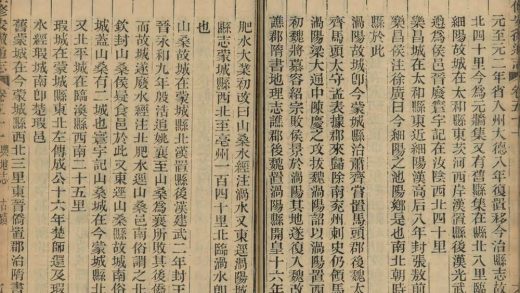 元至元二年省入州大德八年復置移今治縣志故
北四十里今爲元牆集又有舊縣集在縣北八里隱
細陽故城在太和縣東茨河西岸漢置縣後漢光武
遵爲侯邑晉廢寰宇記在汝陰西北四十里
樂昌城在太和縣東近細陽漢高后八年封張敖前
樂昌侯注徐廣曰今細陽之池陽鄉是也南北朝時
縣於此
渦陽故城卽今蒙城縣治蕭齊嘗置馬頭郡後魏
齊馬頭太守孟表據郡來歸除南兗州刺史仍領馬
渦陽梁大通中陳慶之攻拔魏渦陽詔以渦陽置西
初魏將慕容紹宗敗侯景於渦陽其地遂復入魏改
譙郡隋書地理志譙郡後魏置渦陽縣開皇十六年
肥水大業初改曰山桑水經注渦水又東逕渦陽
縣志蒙城縣西北至亳州一百四十里北臨渦水
也
山桑故城在蒙城縣北漢置縣後漢建武二年封王
晉永和九年殷浩進姚襄至山桑爲襄所敗其後僑
而故城遂廢水經注北肥水逕山桑邑南俗謂之北
欽封山桑侯疑食邑於此又東逕山桑縣故城南俗
城蓋山桑有二城也寰宇記山桑城在今蒙城縣北
又北平城在臨漢縣西南二十五里
瑕城在蒙城縣東北左傳成公十六年楚師還及瑕
水經瑕城南卽楚瑕邑
舊蒙城在今蒙城縣西北三里東晉僑置郡治隋書